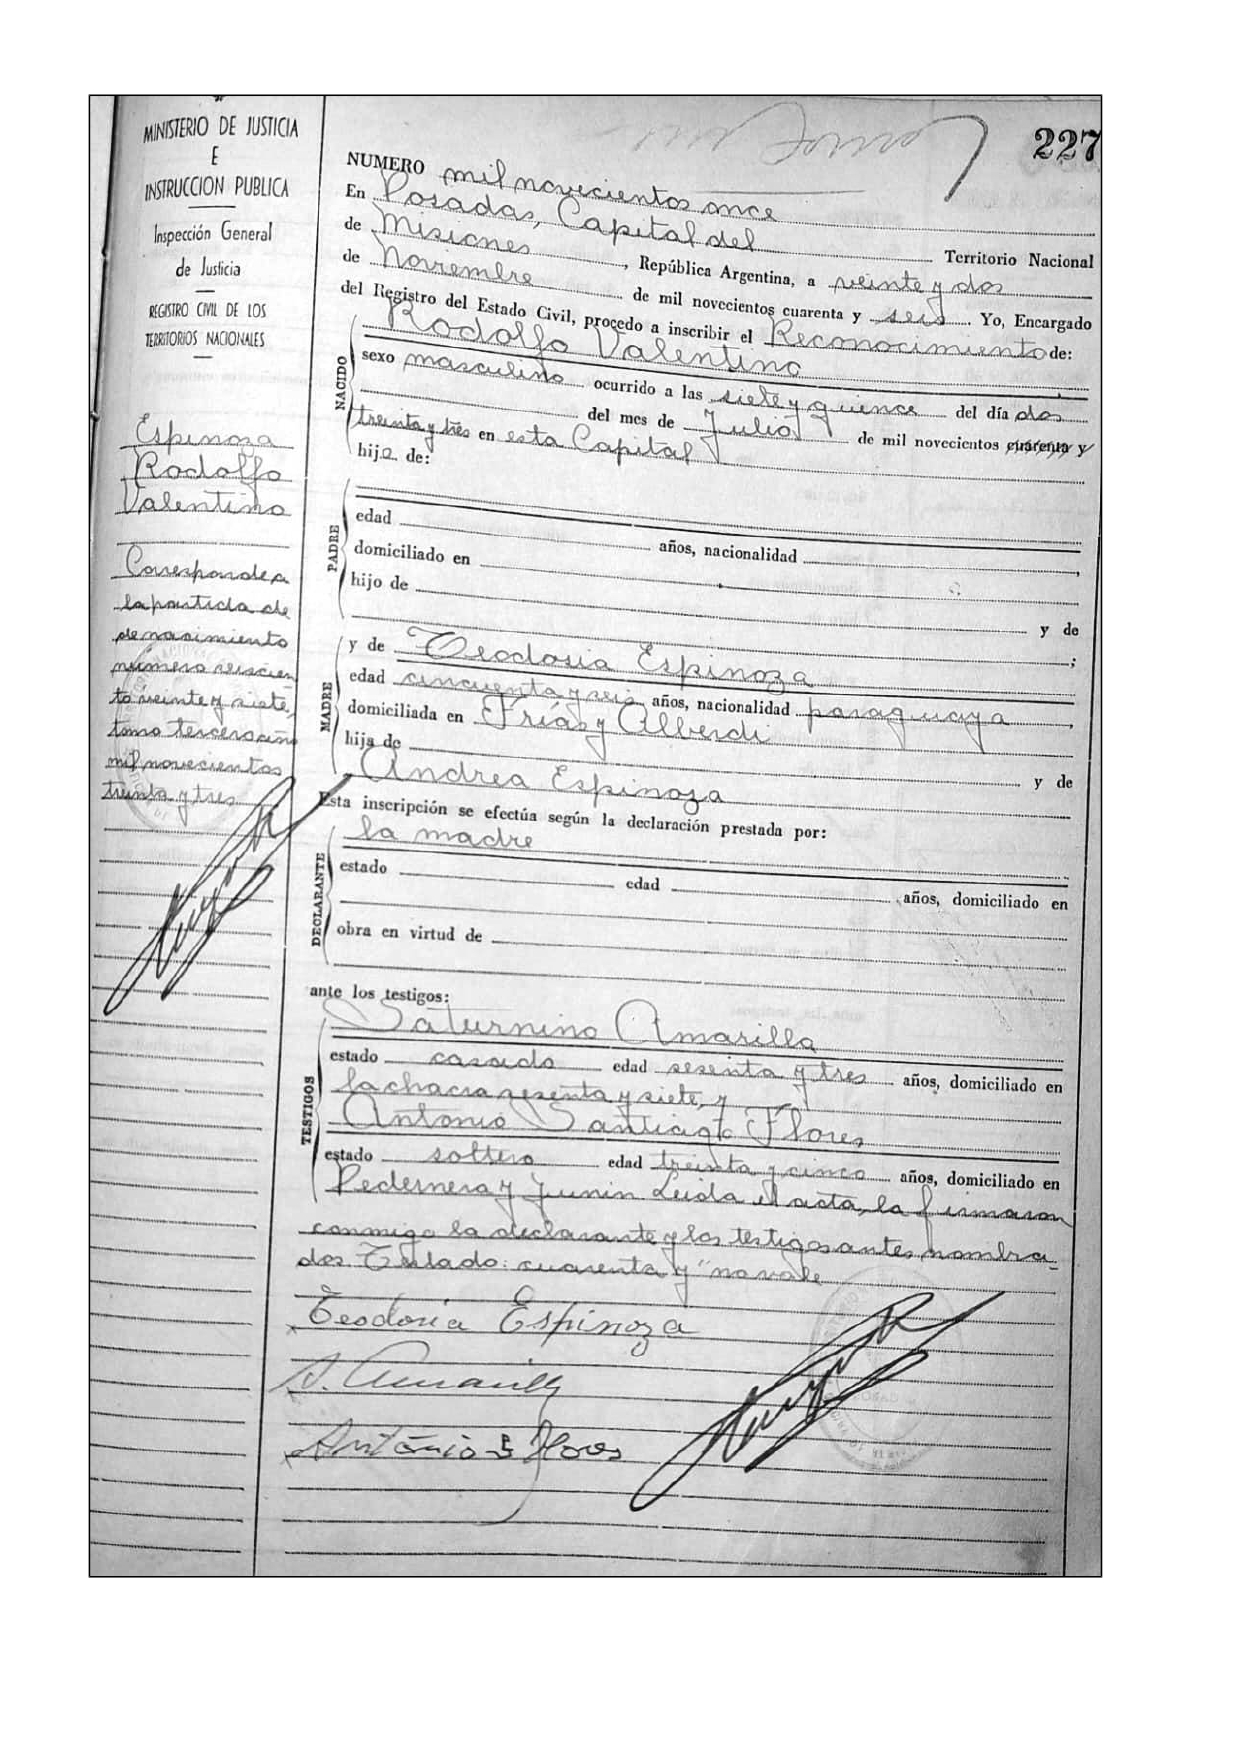 MINISTERIO DE JUSTICIA
E
INSTRUCCION PUBLICA
Inspección General
de Justicia
REGISTRO CIVIL DE LOS
TERRITORIOS NACIONALES
Espinoza
Rodolfo
Valentino
Corresponde a
la partida de
de nacimiento
número seiscien
to veinte y siete,
tomo tercero año
mil novecientos
treinta y tres
227
NUMERO mil novecientos once
En Posadas, Capital del Territorio Nacional
de Misiones, República Argentina, a veinte y dos
de Noviembre de mil novecientos cuarenta y seis. Yo, Encargado
del Registro del Estado Civil, procedo a inscribir el Reconocimiento de:
NACIDO
Rodolfo Valentino
sexo masculino ocurrido a las siete y quince del día dos
del mes de Julio de mil novecientos cuarenta y
treinta y tres en esta Capital
hijo de:
PADRE
edad años, nacionalidad
domiciliado en ,
hijo de
y de
MADRE
y de Teodosia Espinoza ;
edad cincuenta y seis años, nacionalidad paraguaya,
domiciliada en Frías y Alberdi
hija de
y de
Andrea Espinoza
Esta inscripción se efectúa según la declaración prestada por:
DECLARANTE
la madre
estado edad años, domiciliado en
obra en virtud de
ante los testigos:
TESTIGOS
Saturnino Amarilla
estado casado edad sesenta y tres años, domiciliado en
la chacra sesenta y siete, y
Antonio Santiago Flores
estado soltero edad treinta y cinco años, domiciliado en
Pedernera y Junin Leida el acta, la firmaron
conmigo la declarante y los testigos antes nombra-
dos. Testado: cuarenta y "no vale
Teodosia Espinoza
S. Amarilla
Antonio S Flores